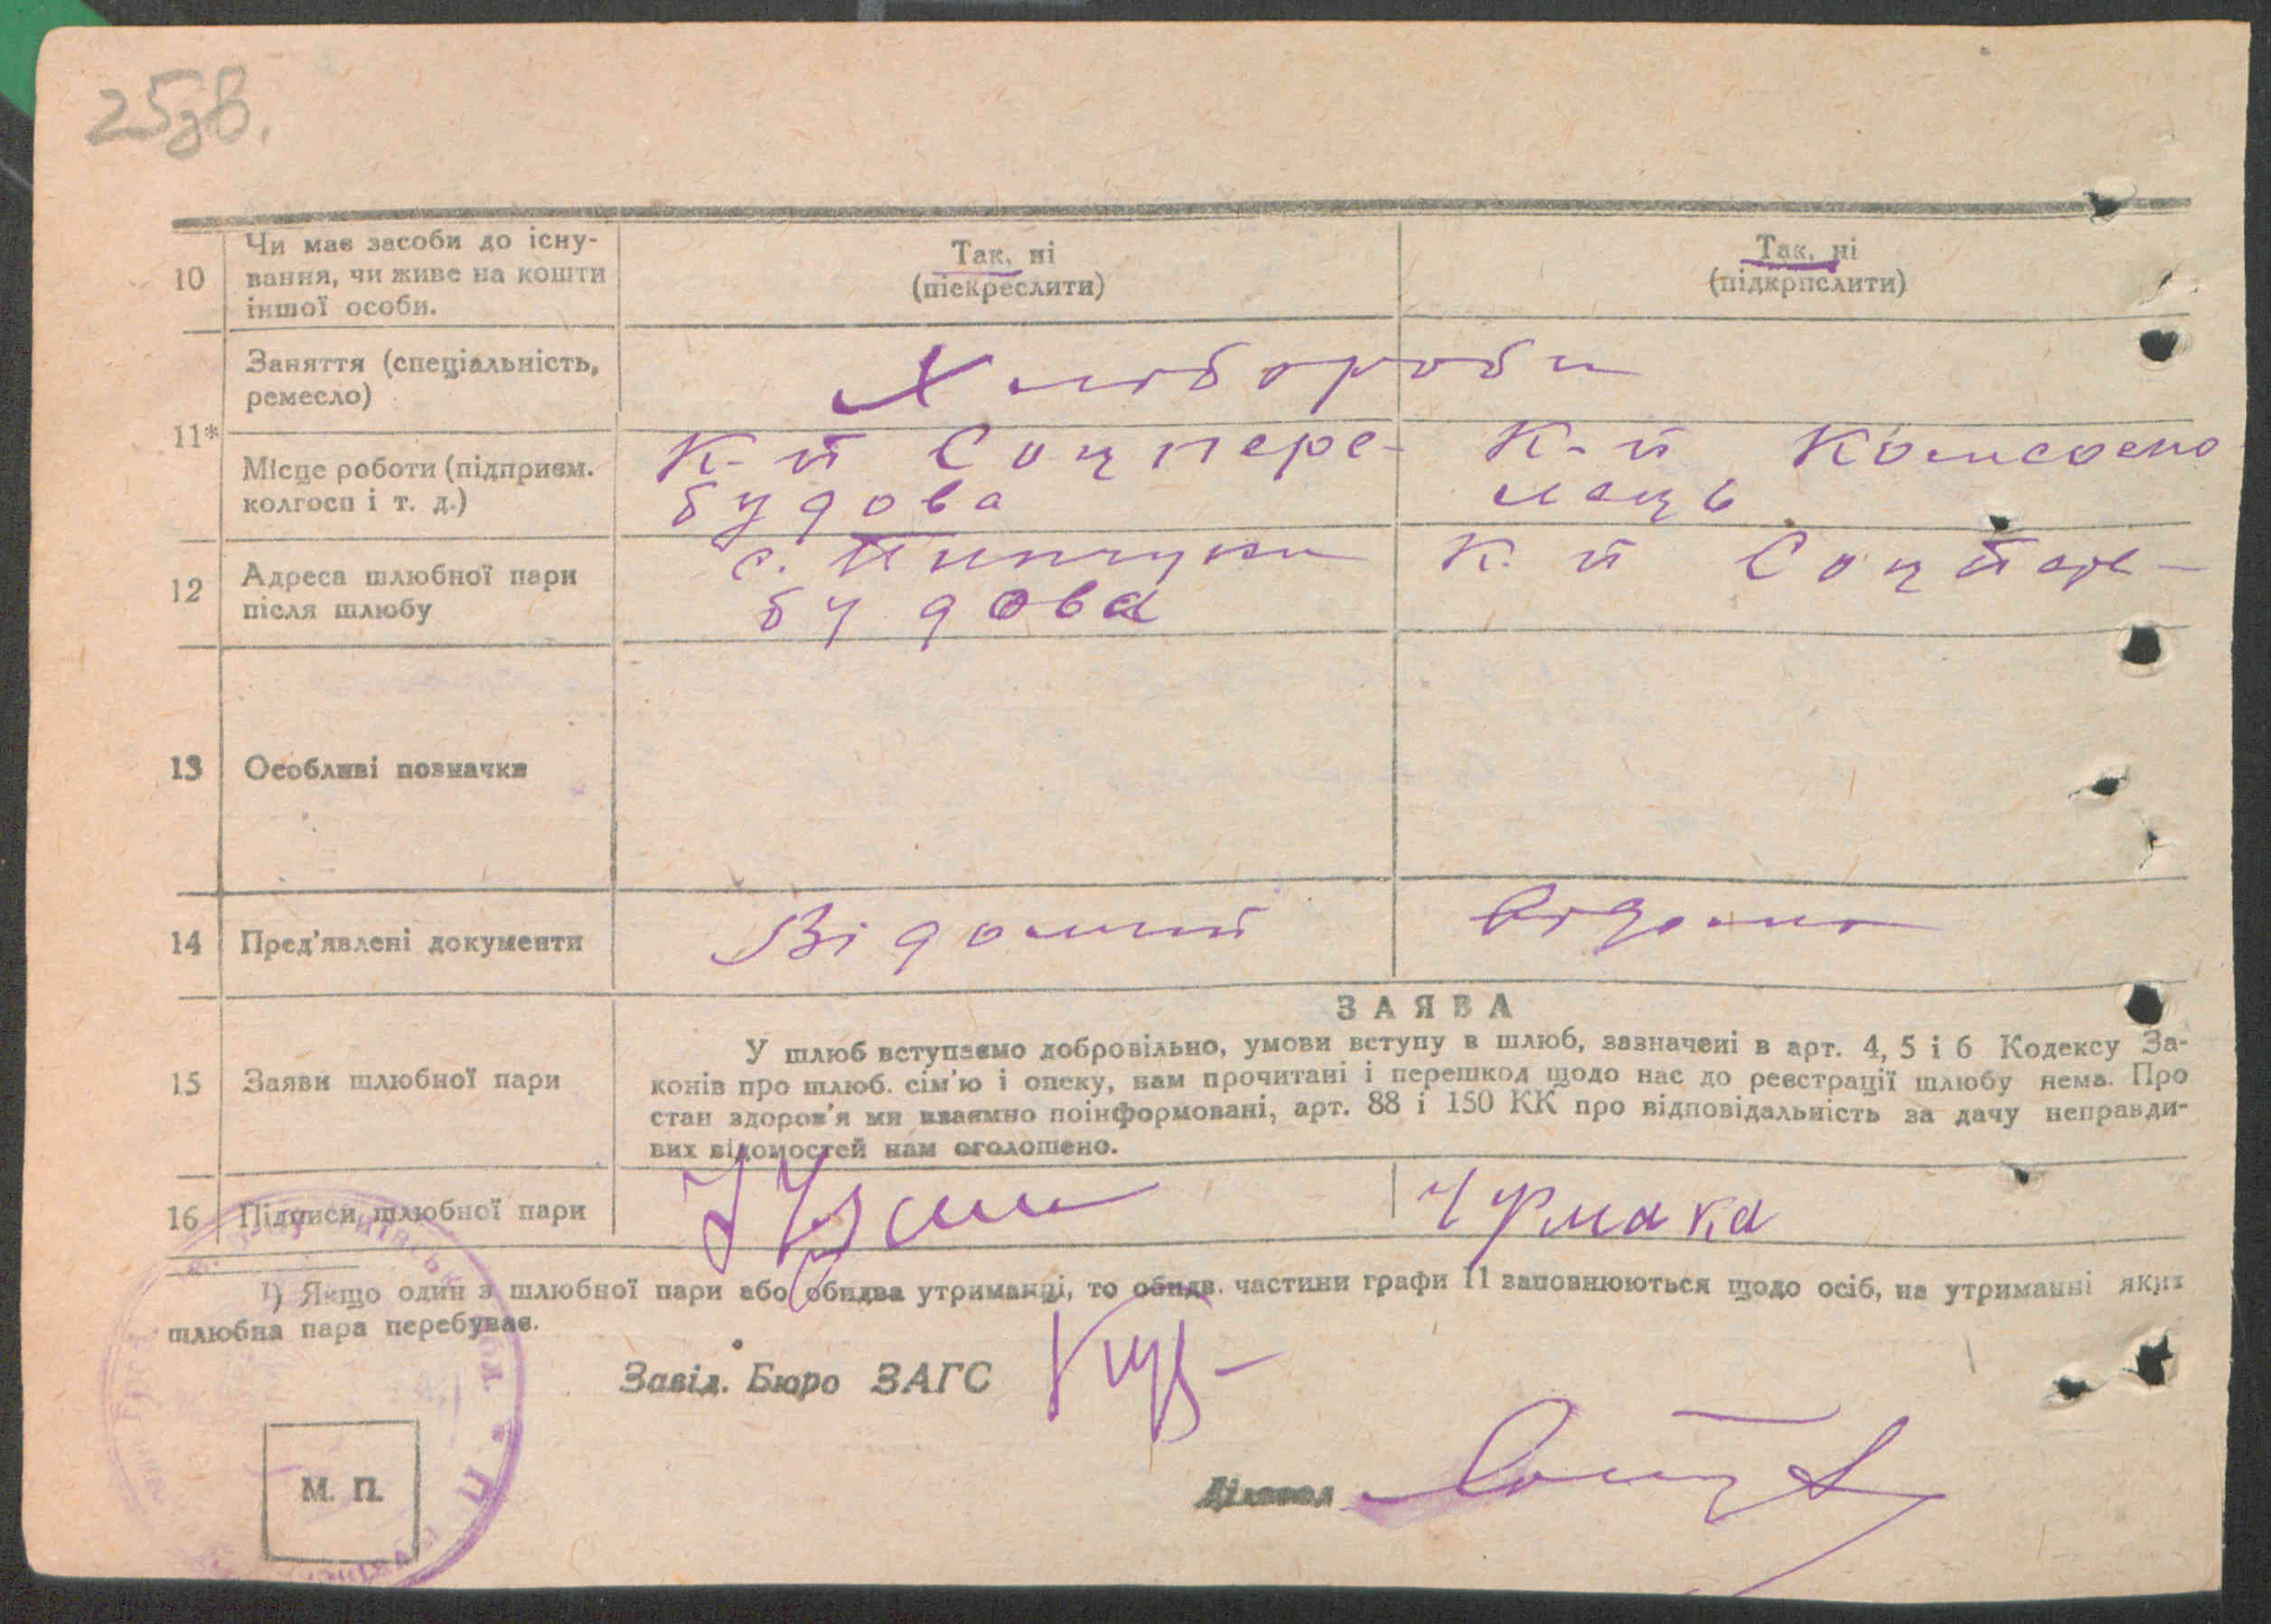 25зв.
10 Чи має засоби до існування, чи живе на кошти іншої особи.
Так, ні
(піекреслити)
Так, ні
(підкрпслити)
11*
Заняття (спеціальність,
ремесло)
Хлібороби
Місце роботи (підприєм.
колгосп і т. д.)
К-п Соцпере-
будова
К-п Комсомо
лець
12 Адреса шлюбної пари
після шлюбу
с. Пинчуки К-п СоцПере-
будова
13 Особливі позначки
14 Пред'явлені документи
Відомий
Відома
15 Заяви шлюбної пари
ЗАЯВА
У шлюб вступаємо добровільно, умови вступу в шлюб, зазначені в арт. 4, 5 і 6 Кодексу За-
конів про шлюб. сім'ю і опеку, нам прочитані і перешкод щодо нас до реєстрації шлюбу нема. Про
стан здоров'я ми взаємно поінформовані, арт. 88 і 150 КК про відповідальність за дачу неправди-
вих відомостей нам оголошено.
16 Підписи шлюбної пари
Чурмака
1) Якщо один з шлюбної пари або обидва утриманці, то обидв. частини графи 11 заповнюються щодо осіб, на утриманні яких
шлюбна пара перебуває.
Завід. Бюро ЗАГС
Діловод
М. П.